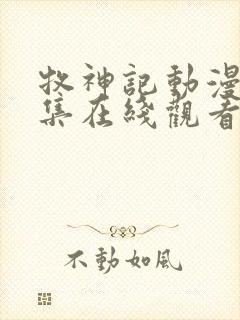 牧神記動漫
集在綫觀看
不動如風